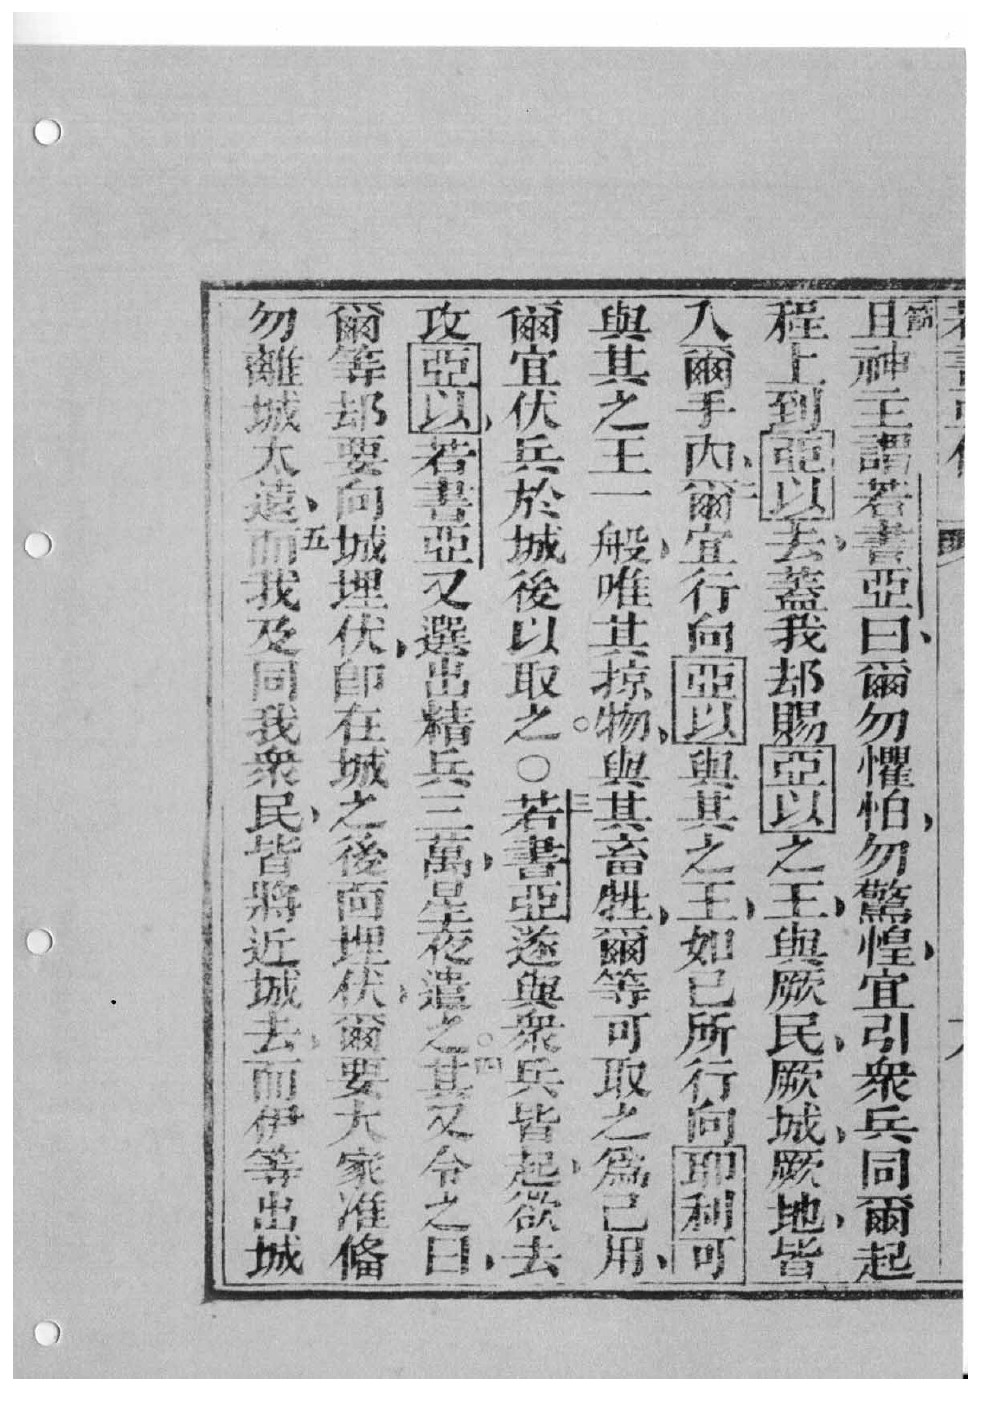 且神主謂若書亞曰爾勿懼怕勿驚惶宜引衆兵同爾起
程上到亞以去蓋我却賜亞以之王與厥民厥城厥地皆
入爾手內二爾宜行向亞以與其之王如已所行向耶利可
與其之王一般唯其掠物與其畜牲爾等可取之爲己用
爾宜伏兵於城後以取之○三若書亞遂與衆兵皆起欲去
攻亞以若書亞又選出精兵三萬星夜遣之四其又令之曰
爾等却要向城埋伏卽在城之後面埋伏爾要大家准偹
勿離城太遠五而我及同我衆民皆將近城去而伊等出城